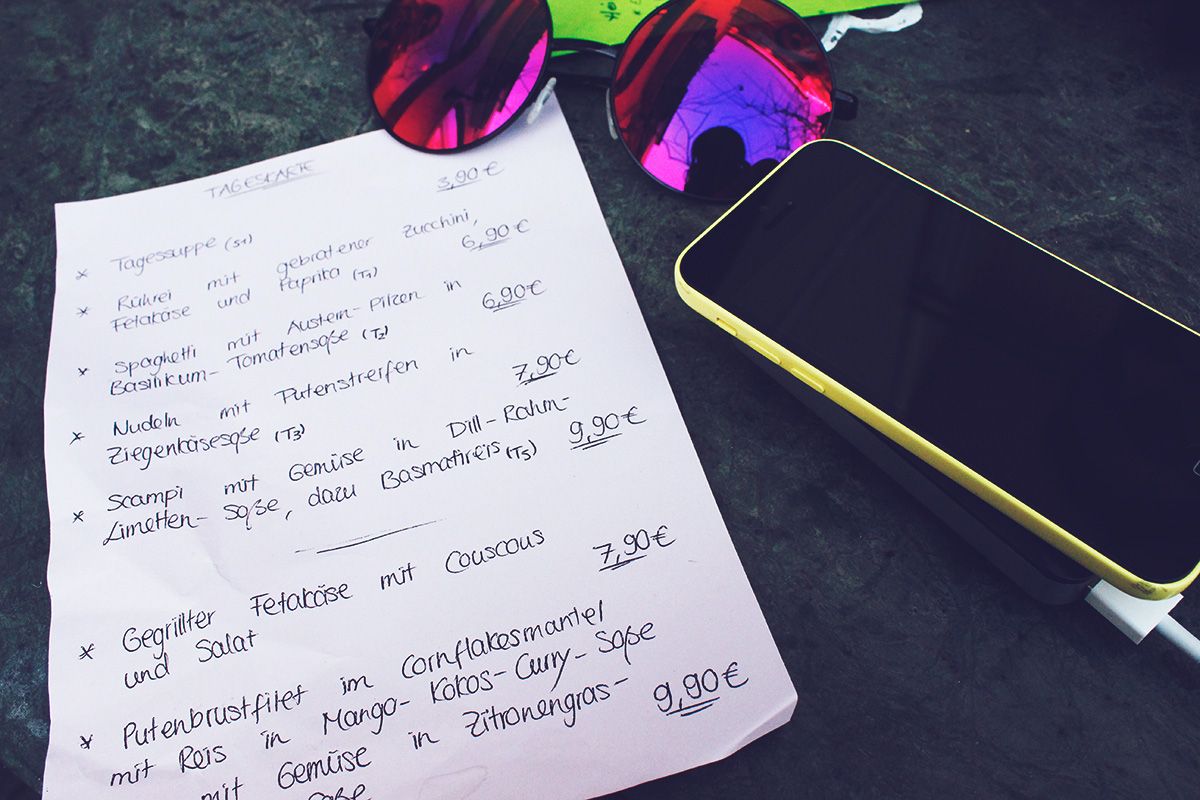 TAGESKARTE
* Tagessuppe (S1) 3,90€
* Rührei mit gebratener Zucchini,
Fetakäse und Paprika (T1) 6,90€
* Spaghetti mit Austern-Pilzen in
Basilikum-Tomatensoße (T2) 6,90€
* Nudeln mit Putenstreifen in
Ziegenkäsesoße (T3) 7,90€
* Scampi mit Gemüse in Dill-Rahm-
Limetten-Soße, dazu Basmatireis (T5) 9,90€
* Gegrillter Fetakäse mit Couscous
und Salat 7,90€
* Putenbrustfilet im Cornflakesmantel
mit Reis in Mango-Kokos-Curry-Soße
mit Gemüse in Zitronengras- 9,90€
Soße